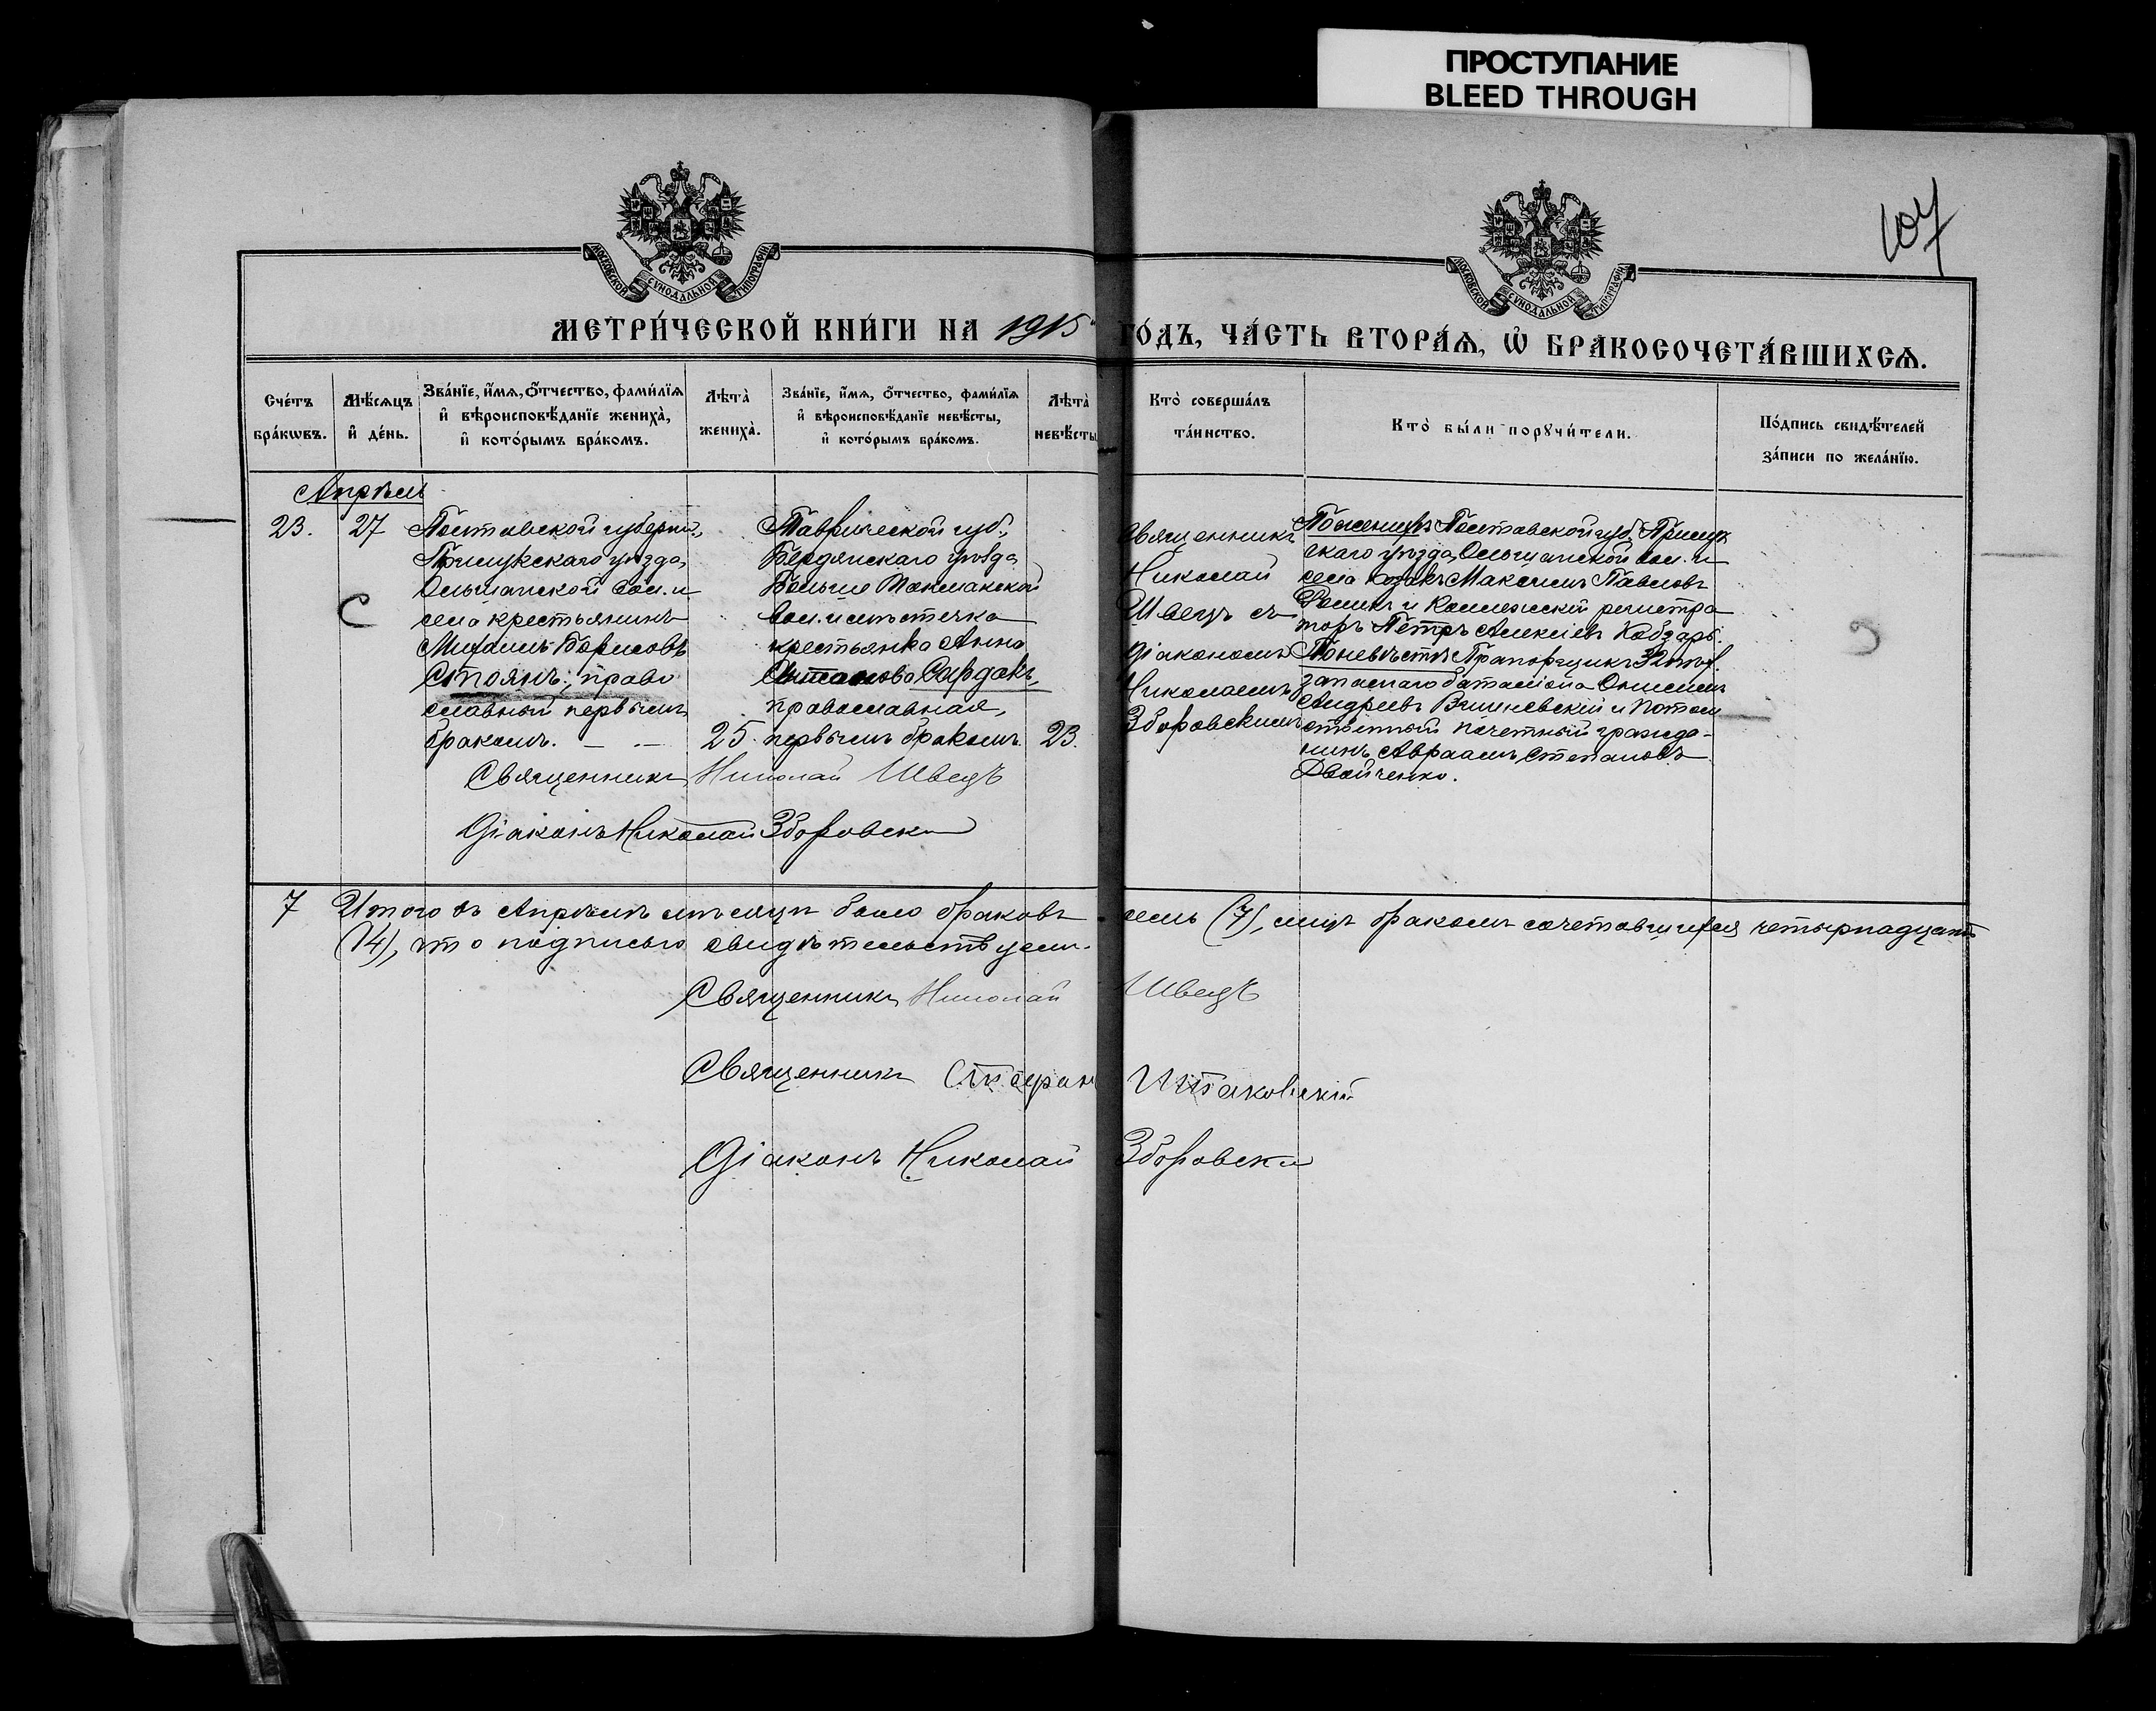 ПРОСТУПАНИЕ
BLEED THROUGH
107
МОСКОВСКОЙ СѴНОДАЛЬНОЙ ТИПОГРАФІИ
МОСКОВСКОЙ СѴНОДАЛЬНОЙ ТИПОГРАФІИ
МЕТРИ́ЧЕСКОЙ КНИ́ГИ НА 1915 ГО́ДЪ, ЧА́СТЬ ВТОРА́Я, Ѡ БРАКОСОЧЕТА́ВШИХСЯ.
Сче́тъ
бра́кѡвъ.
Мѣ́сяцъ
и҆ де́нь.
Зва́нїе, и҆́мя, ѻ҆́тчество, фами́лїя
и҆ вѣроисповѣ́данїе жениха̀,
и҆ кото́рымъ бра́комъ.
Лѣ́та̀
жениха̀.
Зва́нїе, и҆́мя, ѻ҆́тчество, фами́лїя
и҆ вѣроисповѣ́данїе невѣ́сты,
и҆ кото́рымъ бра́комъ.
Лѣ́та̀
невѣ́сты
Кто̀ соверша́лъ
та́инство.
Кто̀ бы́ли порꙋчи́тели.
По́дпись свидѣ́телей
за́писи по жела́нїю.
Апрѣль
23.
27
С
Полтавской губерніи,
Прилукскаго уѣзда,
Ольшанской вол. и
села крестьянинъ
Михаилъ Борисовъ
Стоянъ, право
славный первымъ
бракомъ. — —
25.
Таврической губ.,
Бердянскаго уѣзда
Больше Токмакской
вол. и мѣстечка
крестьянка Анна
Сирдакъ,
православная,
первымъ бракомъ.
23.
Священникъ
Николай
Швецъ съ
діакономъ
Николаемъ
Зборовскимъ
По женихѣ Полтавской губ. Прилук
скаго уѣзда, Ольшанской вол. и
села козакъ Максимъ Павловъ
и Коллежскій регистра
торъ Петръ Алексіевъ Кобзарь.
По невѣстѣ Прапорщикъ 32го
запаснаго баталіона Онисимъ
Андреевъ Вишневскій и Потом
ственный почетный гражда-
нинъ Авраамъ Степановъ
Двойченко.
Священникъ Николай Швецъ
Діаконъ Николай Зборовскій
7 Итого въ Апрѣлѣ мѣсяцѣ было браковъ семь (7), лицъ бракомъ сочетавшихся четырнадцать
(14), что подписью свидѣтельствуемъ.
Священникъ Николай Швецъ
Священникъ Стефан
Діаконъ Николай Зборовскій